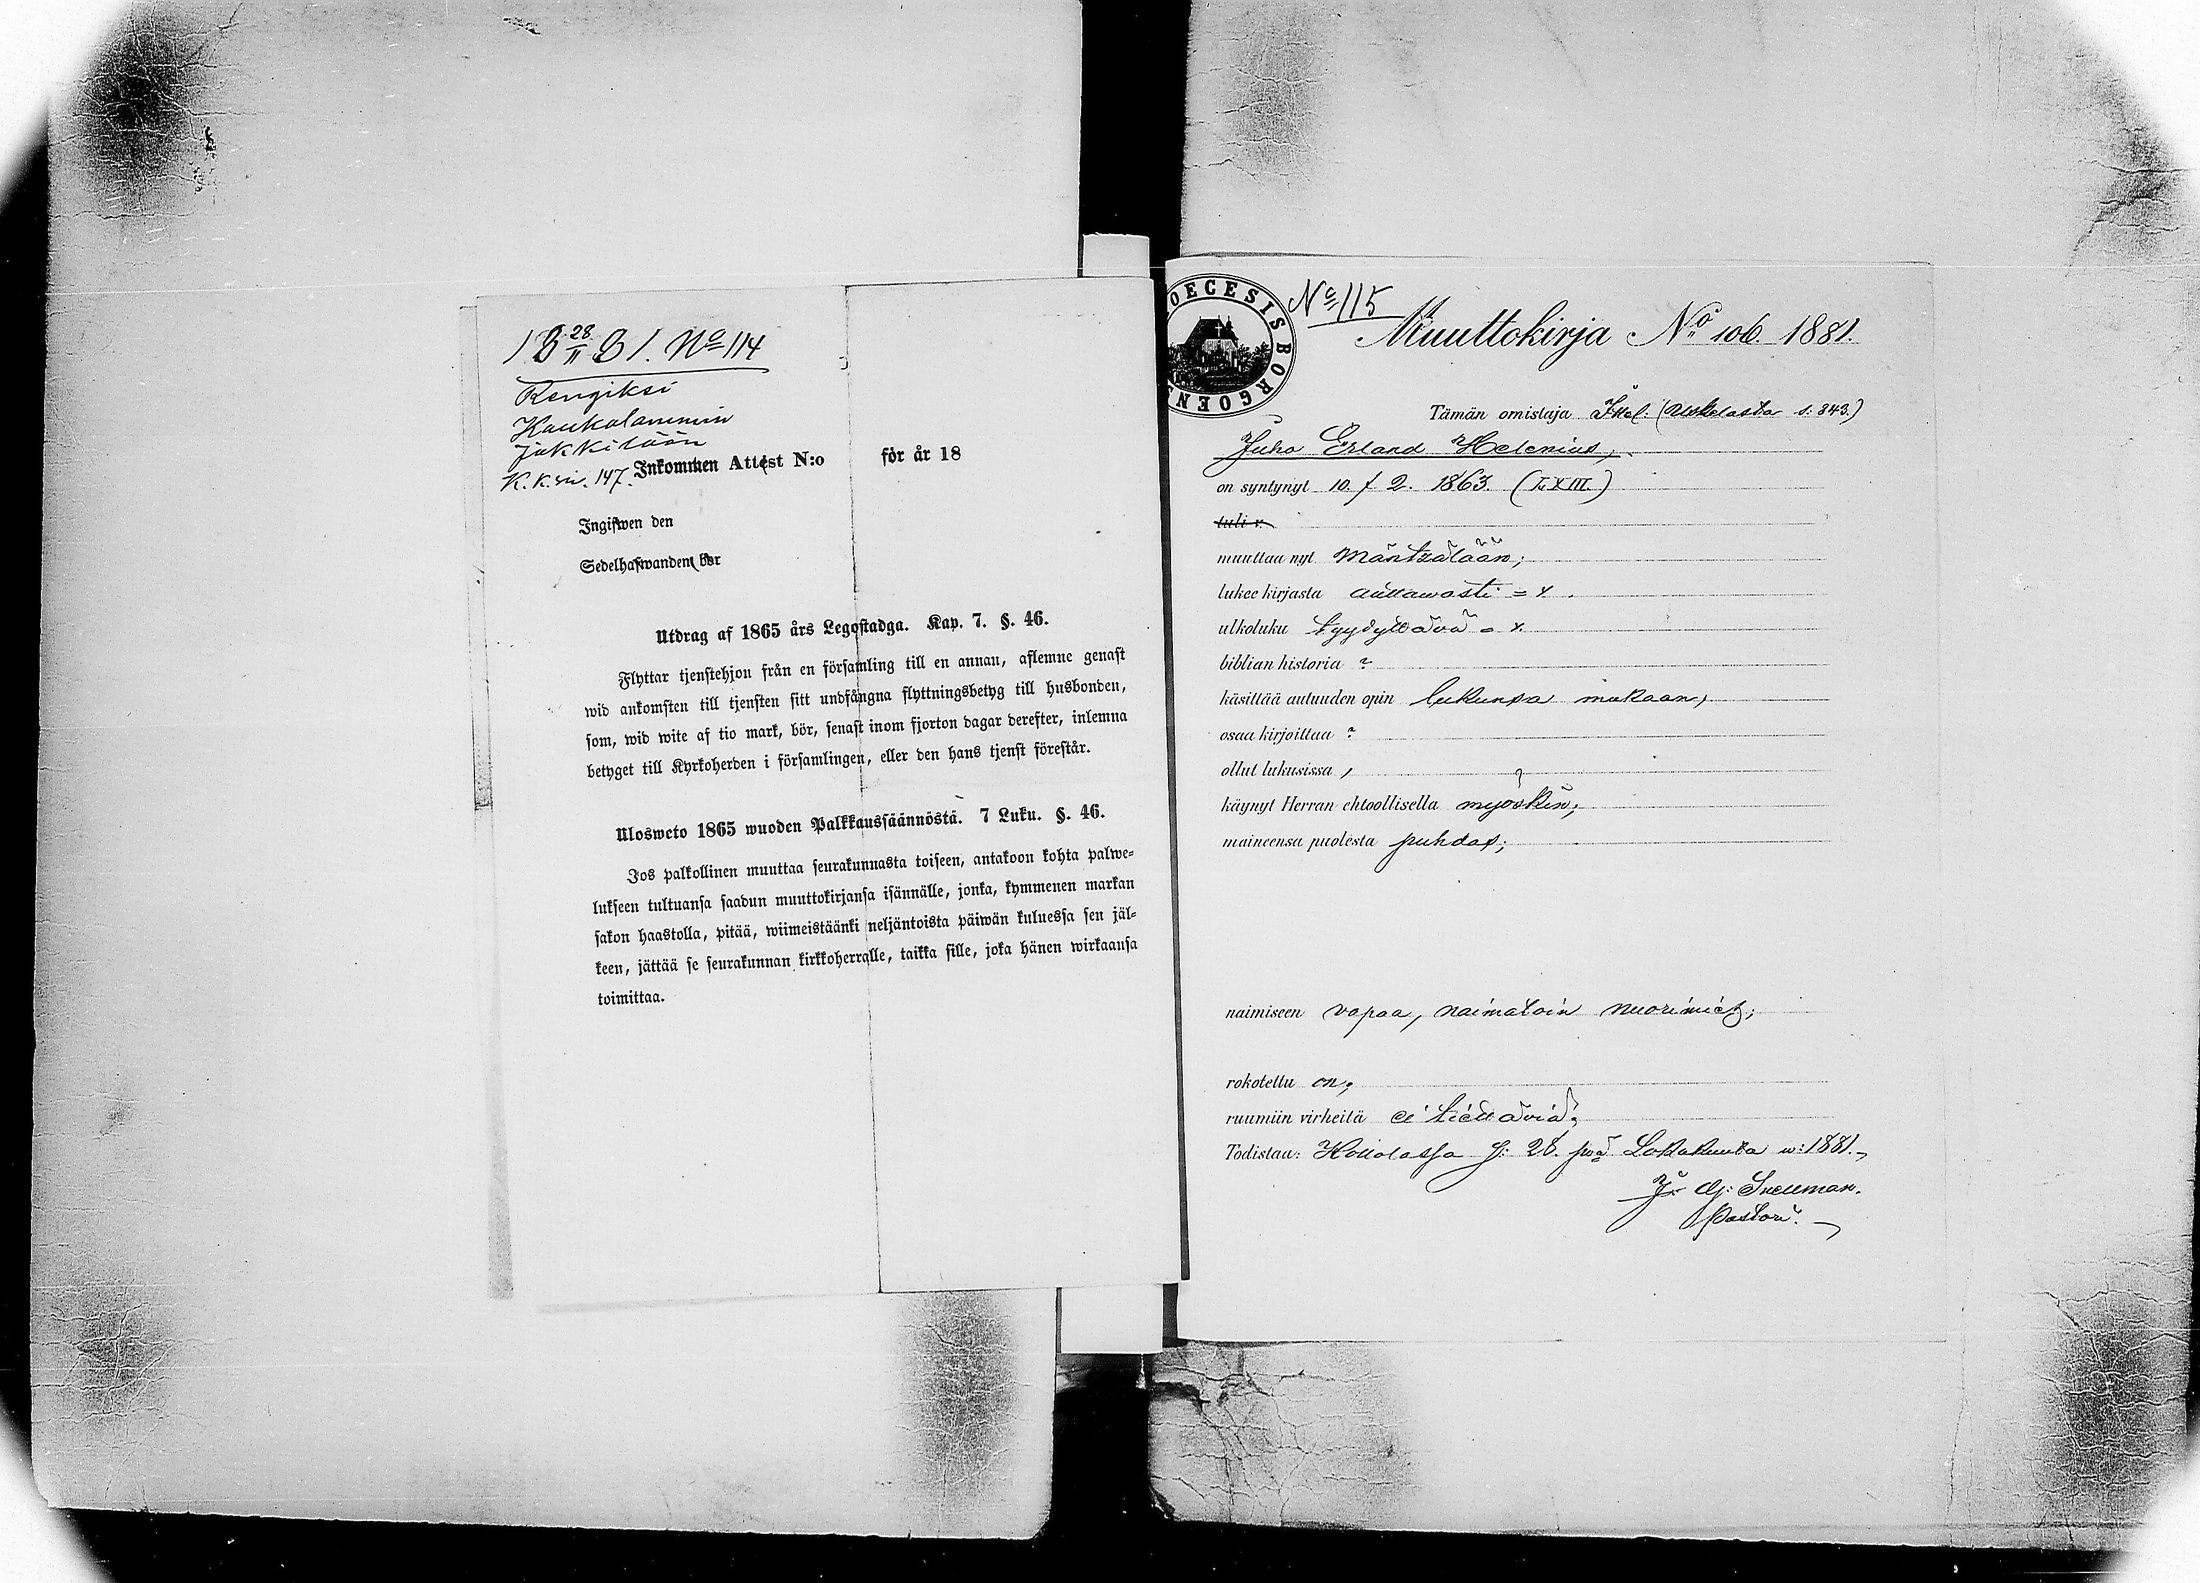 18 28/11 81. No 114
Rengiksi
Kaukalammin
Jukkilaan
K.k.siv. 147.
Inkommen Attest N:o för år 18
Ingifwen den
Sedelhafwanden bor
Utdrag af 1865 års Legostadga. Kap. 7. §. 46.
Flyttar tjenstehjon från en församling till en annan, aflemne genast
wid ankomsten till tjensten sitt undfångna flyttningsbetyg till husbonden,
som, wid wite af tio mark, bör, senast inom fjorton dagar derefter, inlemna
betyget till Kyrkoherden i församlingen, eller den hans tjenst förestår.
Ulosweto 1865 wuoden Palkkaussäännöstä. 7 Luku. §. 46.
Jos palkollinen muuttaa seurakunnasta toiseen, antakoon kohta palwe-
lukseen tultuansa saadun muuttokirjansa isännälle, jonka, kymmenen markan
sakon haastolla, pitää, wiimeistäänki neljäntoista päiwän kuluessa sen jäl-
keen, jättää se seurakunnan kirkkoherralle, taikka sille, joka hänen wirkaansa
toimittaa.
DOECESIS BORGOENS
No 115
Muuttokirja No 106. 1881.
Tämän omistaja Itsel. (Uskilasta s. 343.)
Juho Erland Helenius,
on syntynyt 10. / 2. 1863. (LXIII.)
tuli v.
muuttaa nyt Mäntzälään;
lukee kirjasta auttawasti = x.
ulkoluku tyydyttävä = x.
biblian historia ?
käsittää autuuden opin lukunsa mukaan,
osaa kirjoittaa ?
ollut lukusissa,
käynyt Herran ehtoollisella myöskin;
maineensa puolesta puhdas;
naimiseen vapaa, naimatoin nuorimies;
rokotettu on;
ruumiin virheitä ei tiettäviä;
Todistaa: Hollolassa p: 28. pvä Lokakuuta w: 1881.
Snellman.
Pastori.